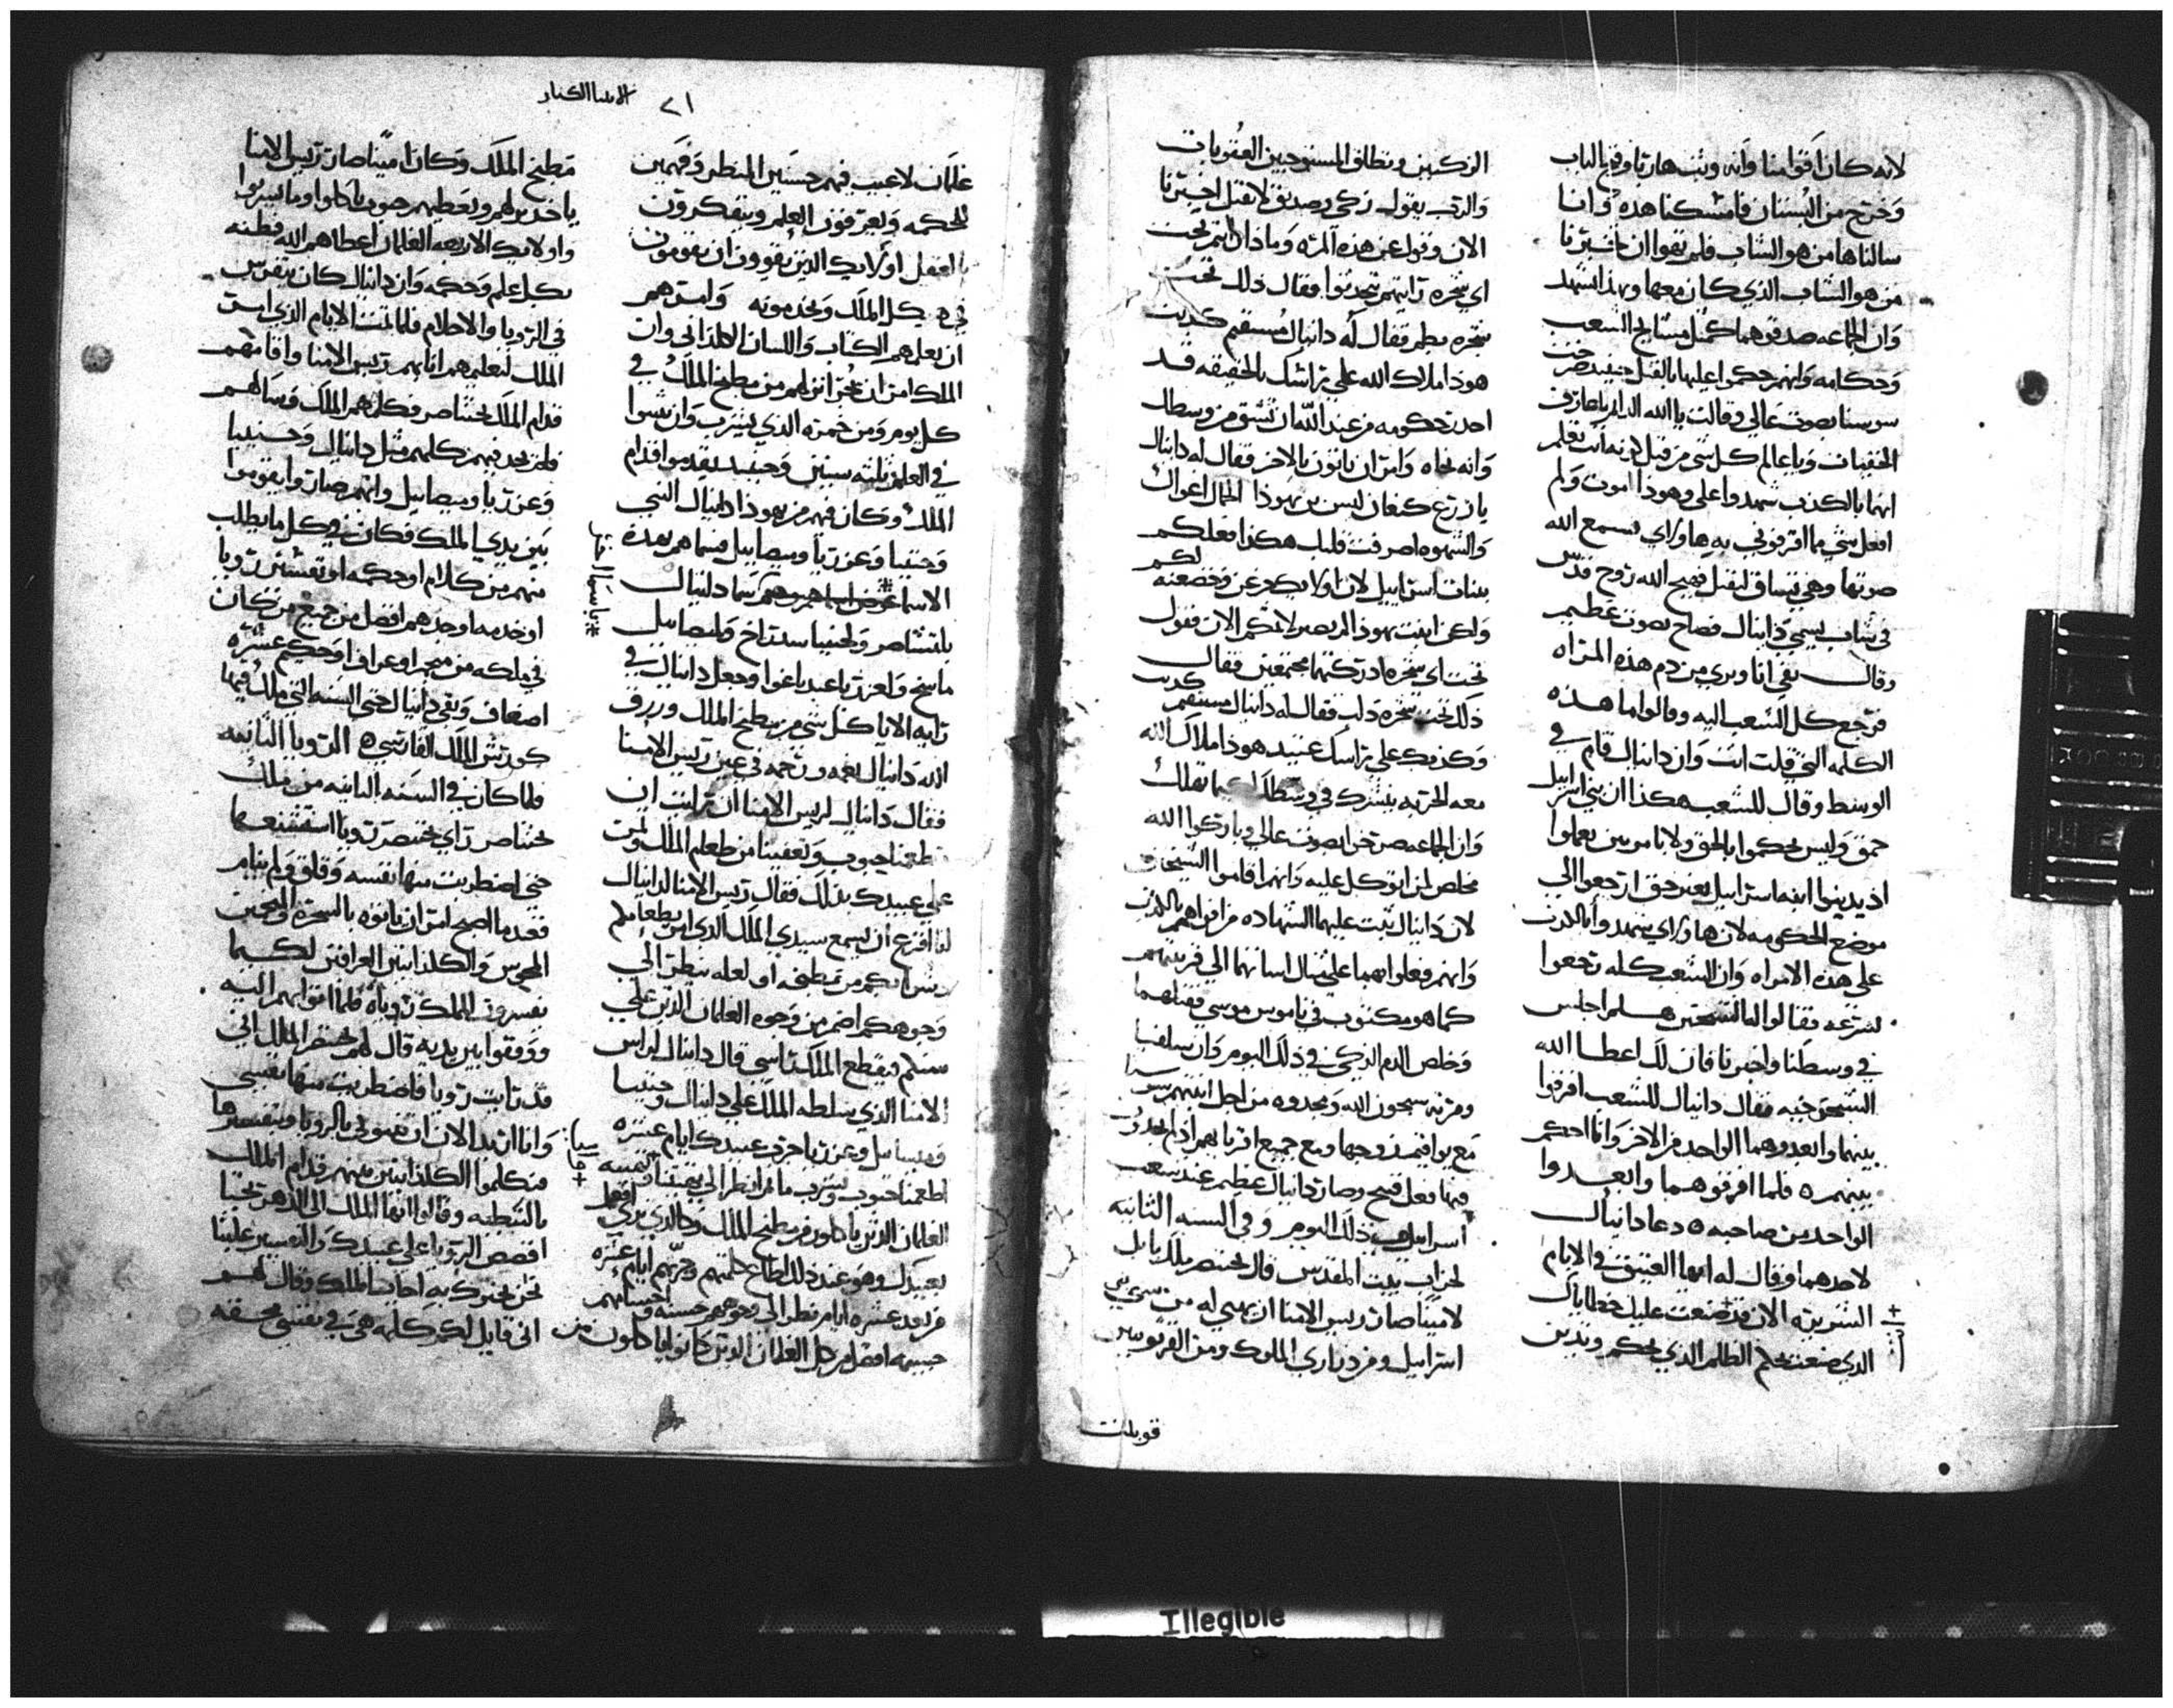 لانه كان اقوا منا وانه وثب هاربا وفتح الباب
وخرج من البستان فامسكنا هذه وانا
سالناها من هو الشاب فلم تهوا ان تخبرنا
من هو الشاب الذي كان معها وبهذا نشهد
وان الجماعه صدقوهما كمثل مشايخ الشعب
وحكامه وانهم حكموا عليها بالقتل حينيد صرخت
سوسنا بصوت عالي وقالت يا الله الدايم يا عارف
الخفيات ويا عالم كل شي من قبل لانه انت تعلم
انهما بالكذب شهدوا علي وهوذا اموت ولم
افعل شي مما اقرفوني به هاولاي فسمع الله
صوتها وهي تنساق لتقتل فهيج الله روح قدس
في شاب يسمي دانيال فصاح بصوت عظيم
وقال نقي انا وبري من دم هذه المراه
فرجع كل الشعب اليه وقالوا ما هذه
الكلمه التي قلت انت وان دانيال قام في
الوسط وقال للشعب هكذا ان بني اسراييل
حمق وليس يحكموا بالحق ولا يا موسي تعملوا
اذ يدينوا ابنه اسراييل بغير حق ارجعوا الي
موضع الحكومه لان هاولاي شهدوا بالكذب
علي هذه الامراه وان الشعب كله رجعوا
لسرعه فقالوا له الشيخين هلم اجلس
في وسطنا واخبرنا فان لك اعطا الله
الشيخوخيه فقال دانيال للشعب افرقوا
بينهما وابعدوهما الواحد من الاخر وانا احكم
بينهم ٥ فلما افرقوهما وابعدوا
الواحد من صاحبه ٥ دعا دانيال
لاحدهما وقال له ايها العتيق في الايام
الشريره الان قد صنعت عليك خطاياك
الذي صنعت بحكم الظلم الذي يحكم وتدين
الزكيين وتطلق المستوجبين العقوبات
والرب يقول زكي وصديق لا تقتل اخبرنا
الان وقول عن هذه المره وماذا رايتم تحت
اي شجره رايتهم يتحدثوا فقال ذلك تحت
شجره بطم فقال له دانيال مستقيم كذبت
هوذا ملاك الله علي راسك بالحقيقه قد
اخذ حكومه من عند الله ان تشق من وسطك
وانه نحاه وامر ان ياتون بالاخر فقال له دانيال
يا زرع كنعان ليس من يهوذا الجمال اغواك
والشهوه اصرفت قلبك هكذا فعلكم
ببنات اسراييل لان اولايك جزعن وخضعنه لكم
ولكن ابنت يهوذا لم تصبر لاثمكم الان فقول
تحت اي شجره ادركتهما مجتمعين فقال
ذلك تحت شجره دلب فقال له دانيال مستقيم كذبت
وكذبك علي راسك عتيد هوذا ملاك الله
معه الحربه ينشرك في وسطك لكيما تهلك
وان الجماعه صرخوا بصوت عالي وباركوا الله
مخلص لمن اتوكل عليه وانهم اقاموا الشيخان
لان دانيال ثبت عليهما الشهاده من افواههم بالكذب
وانهم فعلوا بهما علي مثال اساتهما الي قريبتهم
كما هو مكتوب في ناموس موسي فقتلهما
وخلص الدم الزكي في ذلك اليوم وان سلقيا
ومرته سبحون الله ومجدوه من اجل ابنتهم سوسنا
مع يواقيم زوجها ومع جميع اقربايهم اذ لم يجدون
فيها فعل قبيح وصار دانيال عظيم عند شعب
اسراييل ذلك اليوم وفي السنه الثانيه
لخراب بيت المقدس قال بختنصر ملك بابل
لاميناصار ريس الامنا ان يهيي له من سبي بني
اسراييل ومن ذراري الملوك ومن الفرثوميين
قوبلت
٢١ الانبيا الكبار
غلمان لا عيب فيهم حسنين المنظر وفهمين
للحكمه ويعرفون العلم ويتفكرون
بالعقل اولايك الذين يقوون ان يقومون
في هيكل الملك ويخدمونه وامرهم
ان يعلمهم الكتاب واللسان الكلداني وان
الملك امر ان يجرا رزقهم من مطبخ الملك في
كل يوم ومن خمره الذي يشرب وان يثبتوا
في العلم ثلثه سنين وحينيد يقدموا قدام
الملك وكان فيهم من يهوذا دانيال النبي
وحننيا وعزريا وميصاييل فسماهم بهذه
الاسما سما دانيال
بلتشاصر ولحننيا سدراخ ولميصاييل
ماسخ ولعزريا عبد ناغوا وجعل دانيال في
رايه الا ياكل شي من مطبخ الملك ورزق
الله دانيال نعمه ورحمه في عين ريس الامنا
فقال دانيال لريس الامنا ان رايت ان
تطعمنا حبوب وتعفينا من طعام الملك وتمن
علي عبيدك بذلك فقال ريس الامنا لدانيال
انا افزع ان يسمع سيدي الملك الذي امر بطعامكم
وشرابكم من مطبخه او لعله ينظر الي
وجوهكم اضمر من وجوه الغلمان الذين علي
سنكم فيقطع الملك راسي قال دانيال لراس
الامنا الذي سلطه الملك علي دانيال وحننيا
وميصاييل وعزريا جرب عبيدك ايام عشره
اطعمنا حبوب ونشرب ما ثم انظر الي بهيتنا
الغلمان الذين ياكلون من مطبخ الملك وكالذي تري افعل
بعبيدك وهو عند ذلك اطاع كلمتهم وجربهم ايام عشره
من بعد عشره ايام نظر الي وجوههم حسنه واجسامهم
جسيمه افضل من كل الغلمان الذين كانوا ياكلون من
مطبخ الملك وكان اميناصار ريس الامنا
ياخذ برهم ويعطيهم حبوب ياكلوا وما يشربوا
واولايك الاربعه الغلمان اعطاهم الله فطنه
بكل علم وحكمه وان دانيال كان يتفرس
في الرويا والاحلام فلما تمت الايام الذي امر
الملك لتعليمهم اتا بهم ريس الامنا واقامهم
قدام الملك بختناصر فكلمهم الملك وسالهم
فلم يجد فيهم كلهم مثل دانيال وحننيا
وعزريا وميصاييل وانهم صاروا يقوموا
بين يدي الملك فكان في كل ما يطلب
منهم من كلام او حكمه او تفسير رويا
او خدمه اوجدهم افضل من جميع من كان
في ملكه من منجم او عراف او حكيم عشره
اضعاف وبقي دانيال حتي السنه التي ملك فيها
كورش الملك الفارسي ٥ الرويا الثانيه
فلما كان في السنه الثانيه من ملك
بختناصر راي بختنصر رويا استفضعها
حتي اضطربت منها نفسه وقلق ولم ينام
فعندما اصبح امر ان ياتوه بالسحره والمنجمين
المجوس والكلدانيين العرافين لكيما
يفسروا للملك روياه فلما اتوا بهم اليه
ووقفوا بين يديه قال لهم بختنصر الملك اني
قد رايت رويا فاضطربت منها نفسي
وانا اريد الان ان تنبوني بالرويا وتفسيرها
فتكلموا الكلدانيين بينهم قدام الملك
بالنبطيه وقالوا ايها الملك الي الدهر تحيا
اقصص الرويا علي عبيدك والتفسير علينا
نحن نخبرك به اجاب الملك وقال لهم
اني قايل لكم كلمه هي في نفسي محققه
Illegible